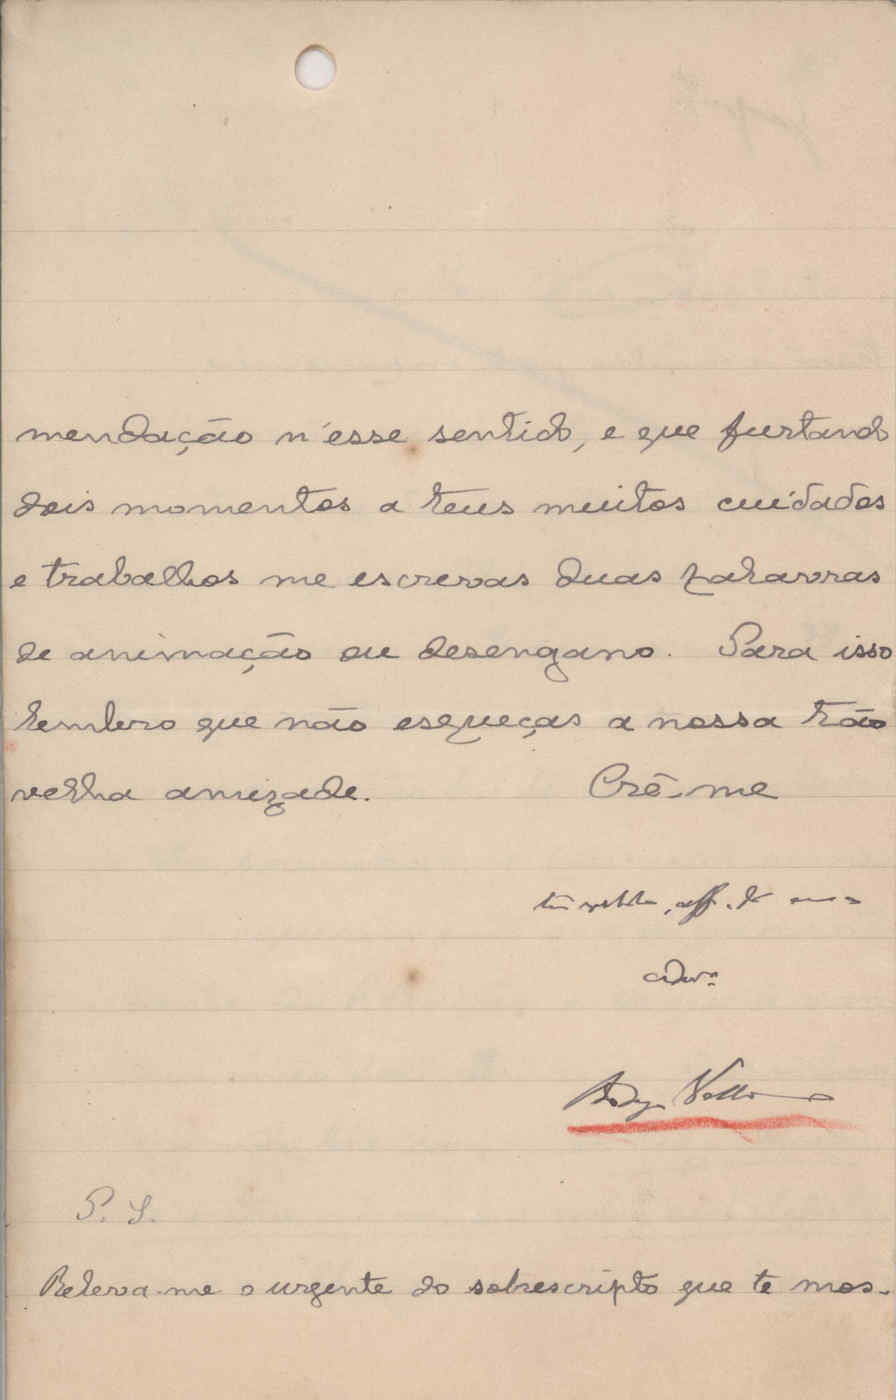 mendação n'esse sentido, e que furtando
dois momentos a teus muitos cuidados
e trabalhos me escrevas duas palavras
de animação ou desengano. Para isso
lembro que não esqueças a nossa tão
velha amizade. Crê-me
aff. da
P. S.
Releva-me o urgente do sobrescripto que te mos-